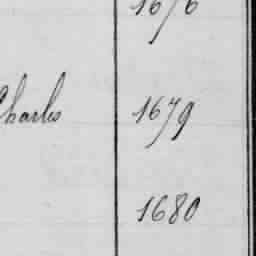 1676
Charles 1679
1680